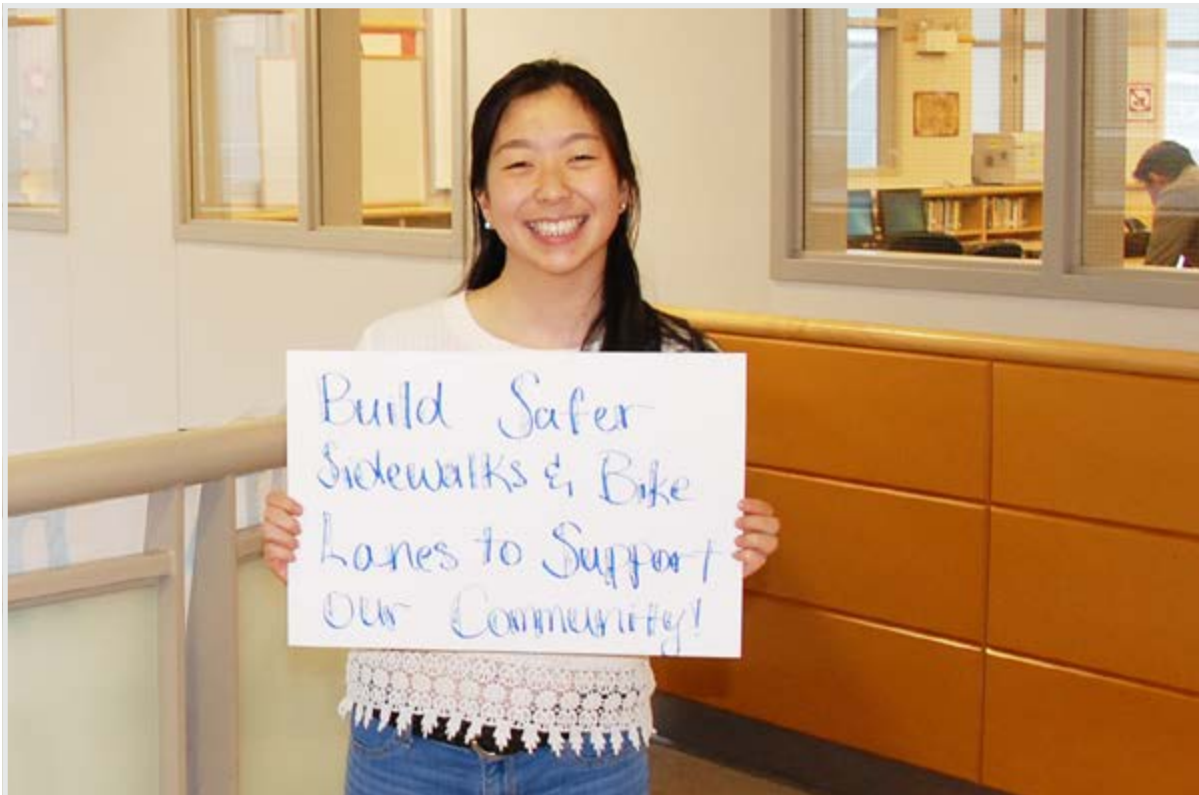 Build Safer
Sidewalks & Bike
Lanes to Support
our Community!